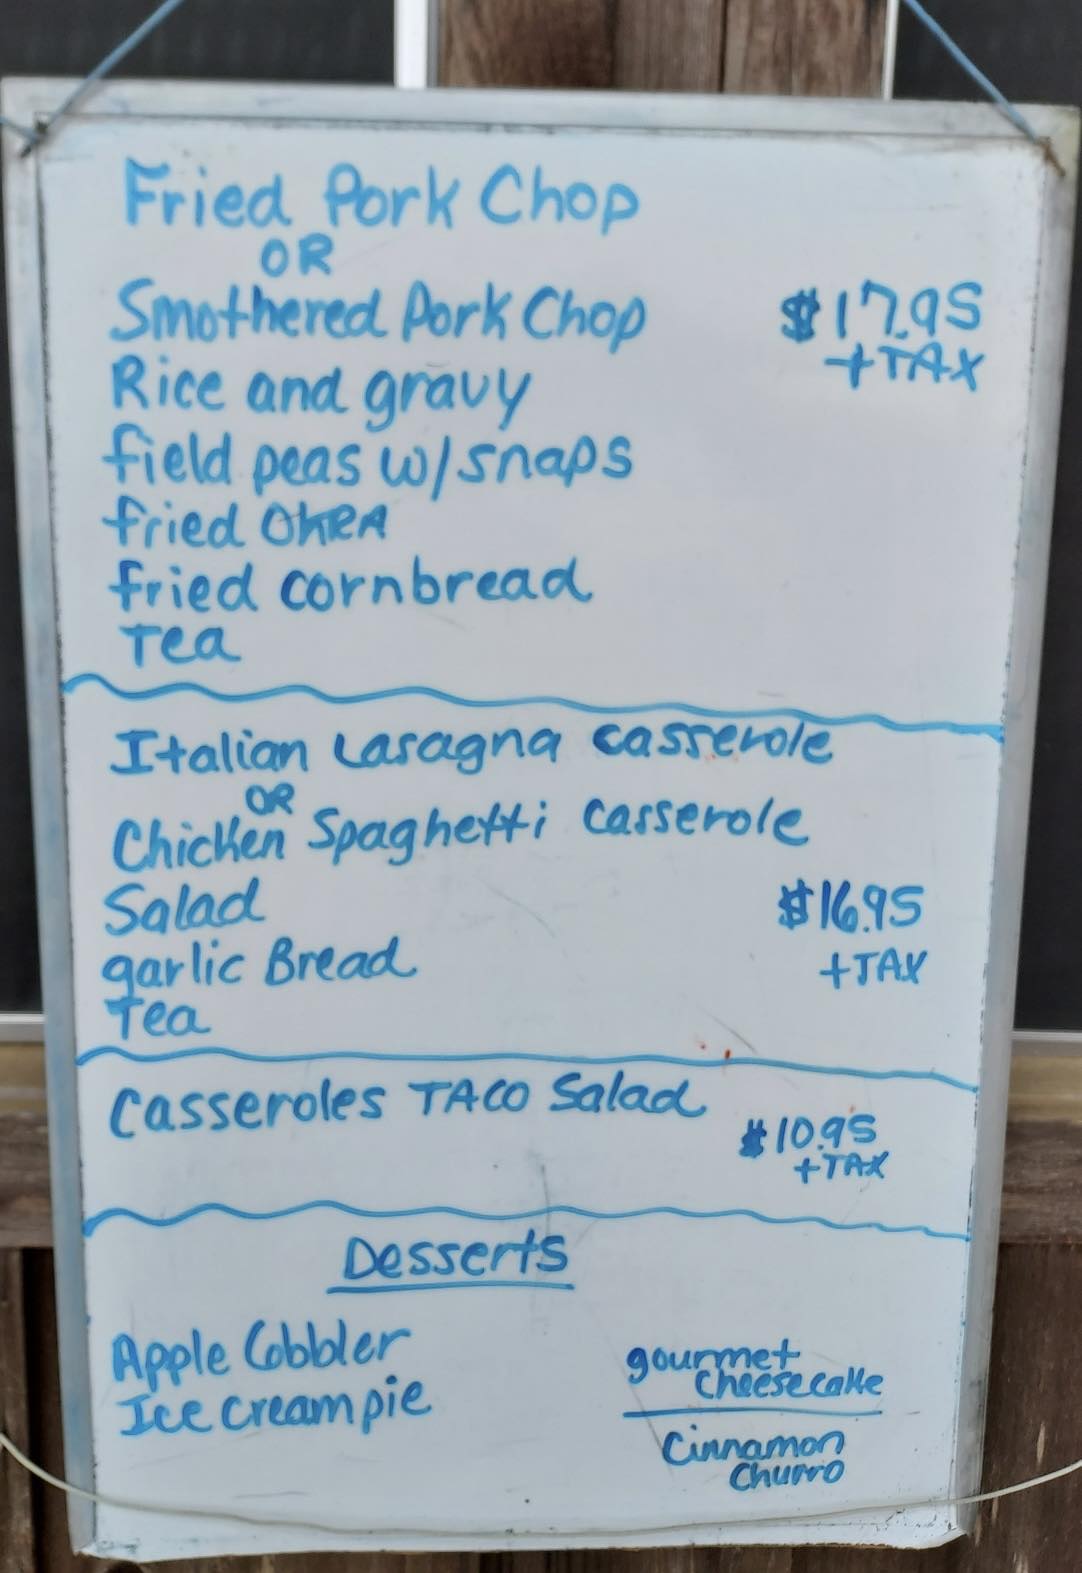 Fried Pork Chop
OR
Smothered Pork Chop $17.95
+TAX
Rice and gravy
field peas w/snaps
fried OKRA
fried cornbread
Tea
Italian Lasagna casserole
OR
Chicken Spaghetti casserole
Salad $16.95
garlic Bread +TAX
Tea
Casseroles TACO Salad
$10.95
+TAX
Desserts
Apple Cobbler
Ice cream pie
gourmet
Cheesecake
Cinnamon
Churro